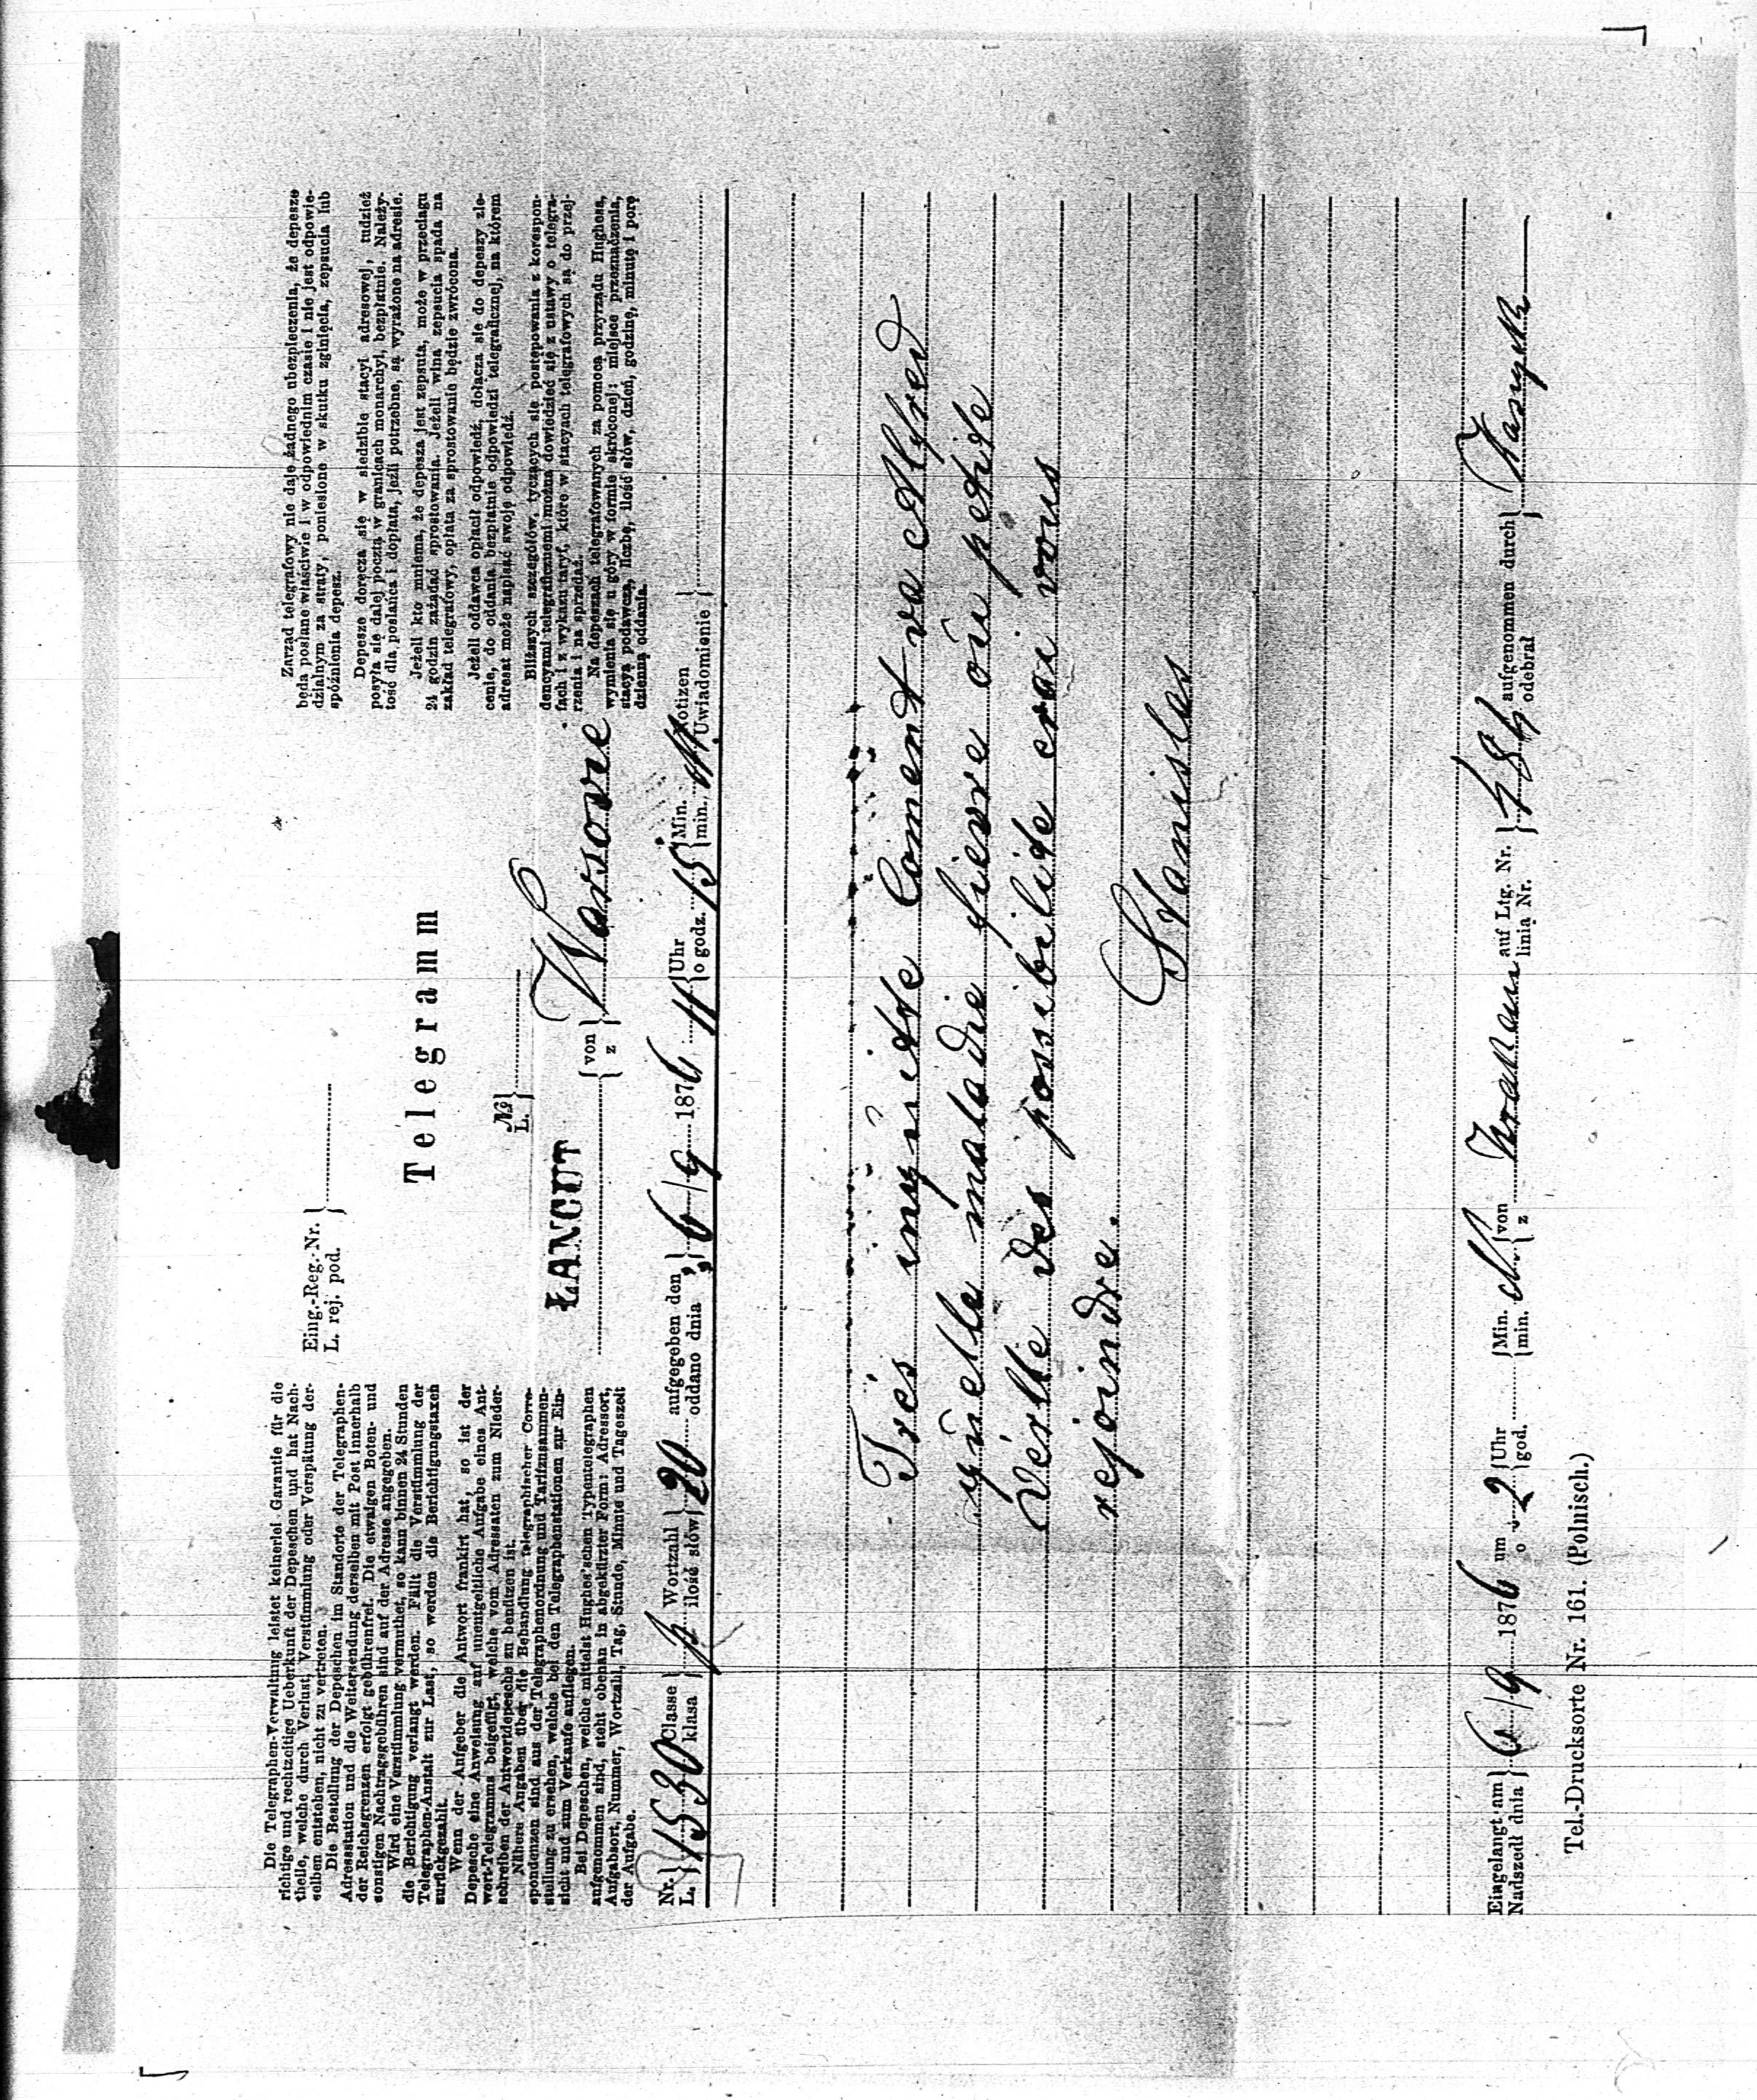 Die Telegraphen-Verwaltung leistet keinerlei Garantie für die
richtige und rechtzeitige Ueberkunft der Depeschen und hat Nach-
theile, welche durch Verlust, Verstümmlung oder Verspätung der-
selben entstehen, nicht zu vertreten.
Die Bestellung der Depeschen im Standorte der Telegraphen-
Adressstation und die Weitersendung derselben mit Post innerhalb
der Reichsgrenzen erfolgt gebührenfrei. Die etwaigen Boten- und
sonstigen Nachtragsgebühren sind auf der Adresse angegeben.
Wird eine Verstümmlung vermuthet, so kann binnen 24 Stunden
die Berichtigung verlangt werden. Fällt die Verstümmlung der
Telegraphen-Anstalt zur Last, so werden die Berichtigungstaxen
zurückgezahlt.
Wenn der Aufgeber die Antwort frankirt hat, so ist der
Depesche eine Anweisung auf unentgeltliche Aufgabe eines Ant-
wort-Telegramms beigefügt, welche vom Adressaten zum Nieder-
schreiben der Antwortdepesche zu benützen ist.
Nähere Angaben über die Behandlung telegraphischer Corre-
spondenzen sind aus der Telegraphenordnung und Tarifzusammen-
stellung zu ersehen, welche bei den Telegraphenstationen zur Ein-
sicht und zum Verkaufe aufliegen.
Bei Depeschen, welche mittelst Hughes'schen Typentelegraphen
aufgenommen sind, steht obenan in abgekürzter Form: Adressort,
Aufgabsort, Nummer, Wortzahl, Tag, Stunde, Minute und Tageszeit
der Aufgabe.
Eing.-Reg.-Nr.
L. rej. pod.
Telegramm
№
L.
ŁAŃCUT von z Warsovie
Zarząd telegrafowy nie daje żadnego ubezpieczenia, że depesze
będą posłane właściwie i w odpowiednim czasie i nie jest odpowie-
dzialnym za straty, poniesione w skutku zginięcia, zepsucia lub
spóźnienia depesz.
Depesze doręcza się w siedzibie stacyi adresowej, tudzież
posyła się dalej pocztą w granicach monarchyi, bezpłatnie. Należy-
tość dla posłańca i dopłata, jeżli potrzebne, są wyrażone na adresie.
Jeżeli kto mniema, że depesza jest zepsuta, może w przeciągu
24 godzin zażądać sprostowania. Jeżeli wina zepsucia spada na
zakład telegrafowy, opłata za sprostowanie będzie zwrócona.
Jeżeli oddawca opłacił odpowiedź, dołącza się do depeszy zle-
cenie, do oddania bezpłatnie odpowiedzi telegraficznej, na którem
adresat może napisać swoję odpowiedź.
Bliższych szczegółów, tyczących się postępowania z korespon-
dencyami telegraficznemi można dowiedzieć się z ustawy o telegra-
fach i z wykazu taryf, które w stacyach telegrafowych są do przej-
rzenia i na sprzedaż.
Na depeszach telegrafowanych za pomocą przyrządu Hughesa,
wymienia się u góry w formie skróconej: miejsce przeznaczenia,
stacyą podawczą, liczbę, ilość słów, dzień, godzinę, minutę i porę
dzienną oddania.
Nr. L. 1530 Classe klasa Wortzahl ilość słów 20 aufgegeben den oddano dnia 6/9 1876 11 Uhr o godz. 15 Min. min. Notizen Uwiadomienie
Tres inquiete Coment va Alfred
quelle maladie fievre oú petite
verlle des possibilite erai vous
rejoindre.
Stanislas
Eingelangt am Nadszedł dnia 6/9 1876 um o 2 Uhr god. Min. min. von z Krakau auf Ltg. Nr. linią Nr. 484 aufgenommen durch odebrał
Tel.-Drucksorte Nr. 161. (Polnisch.)